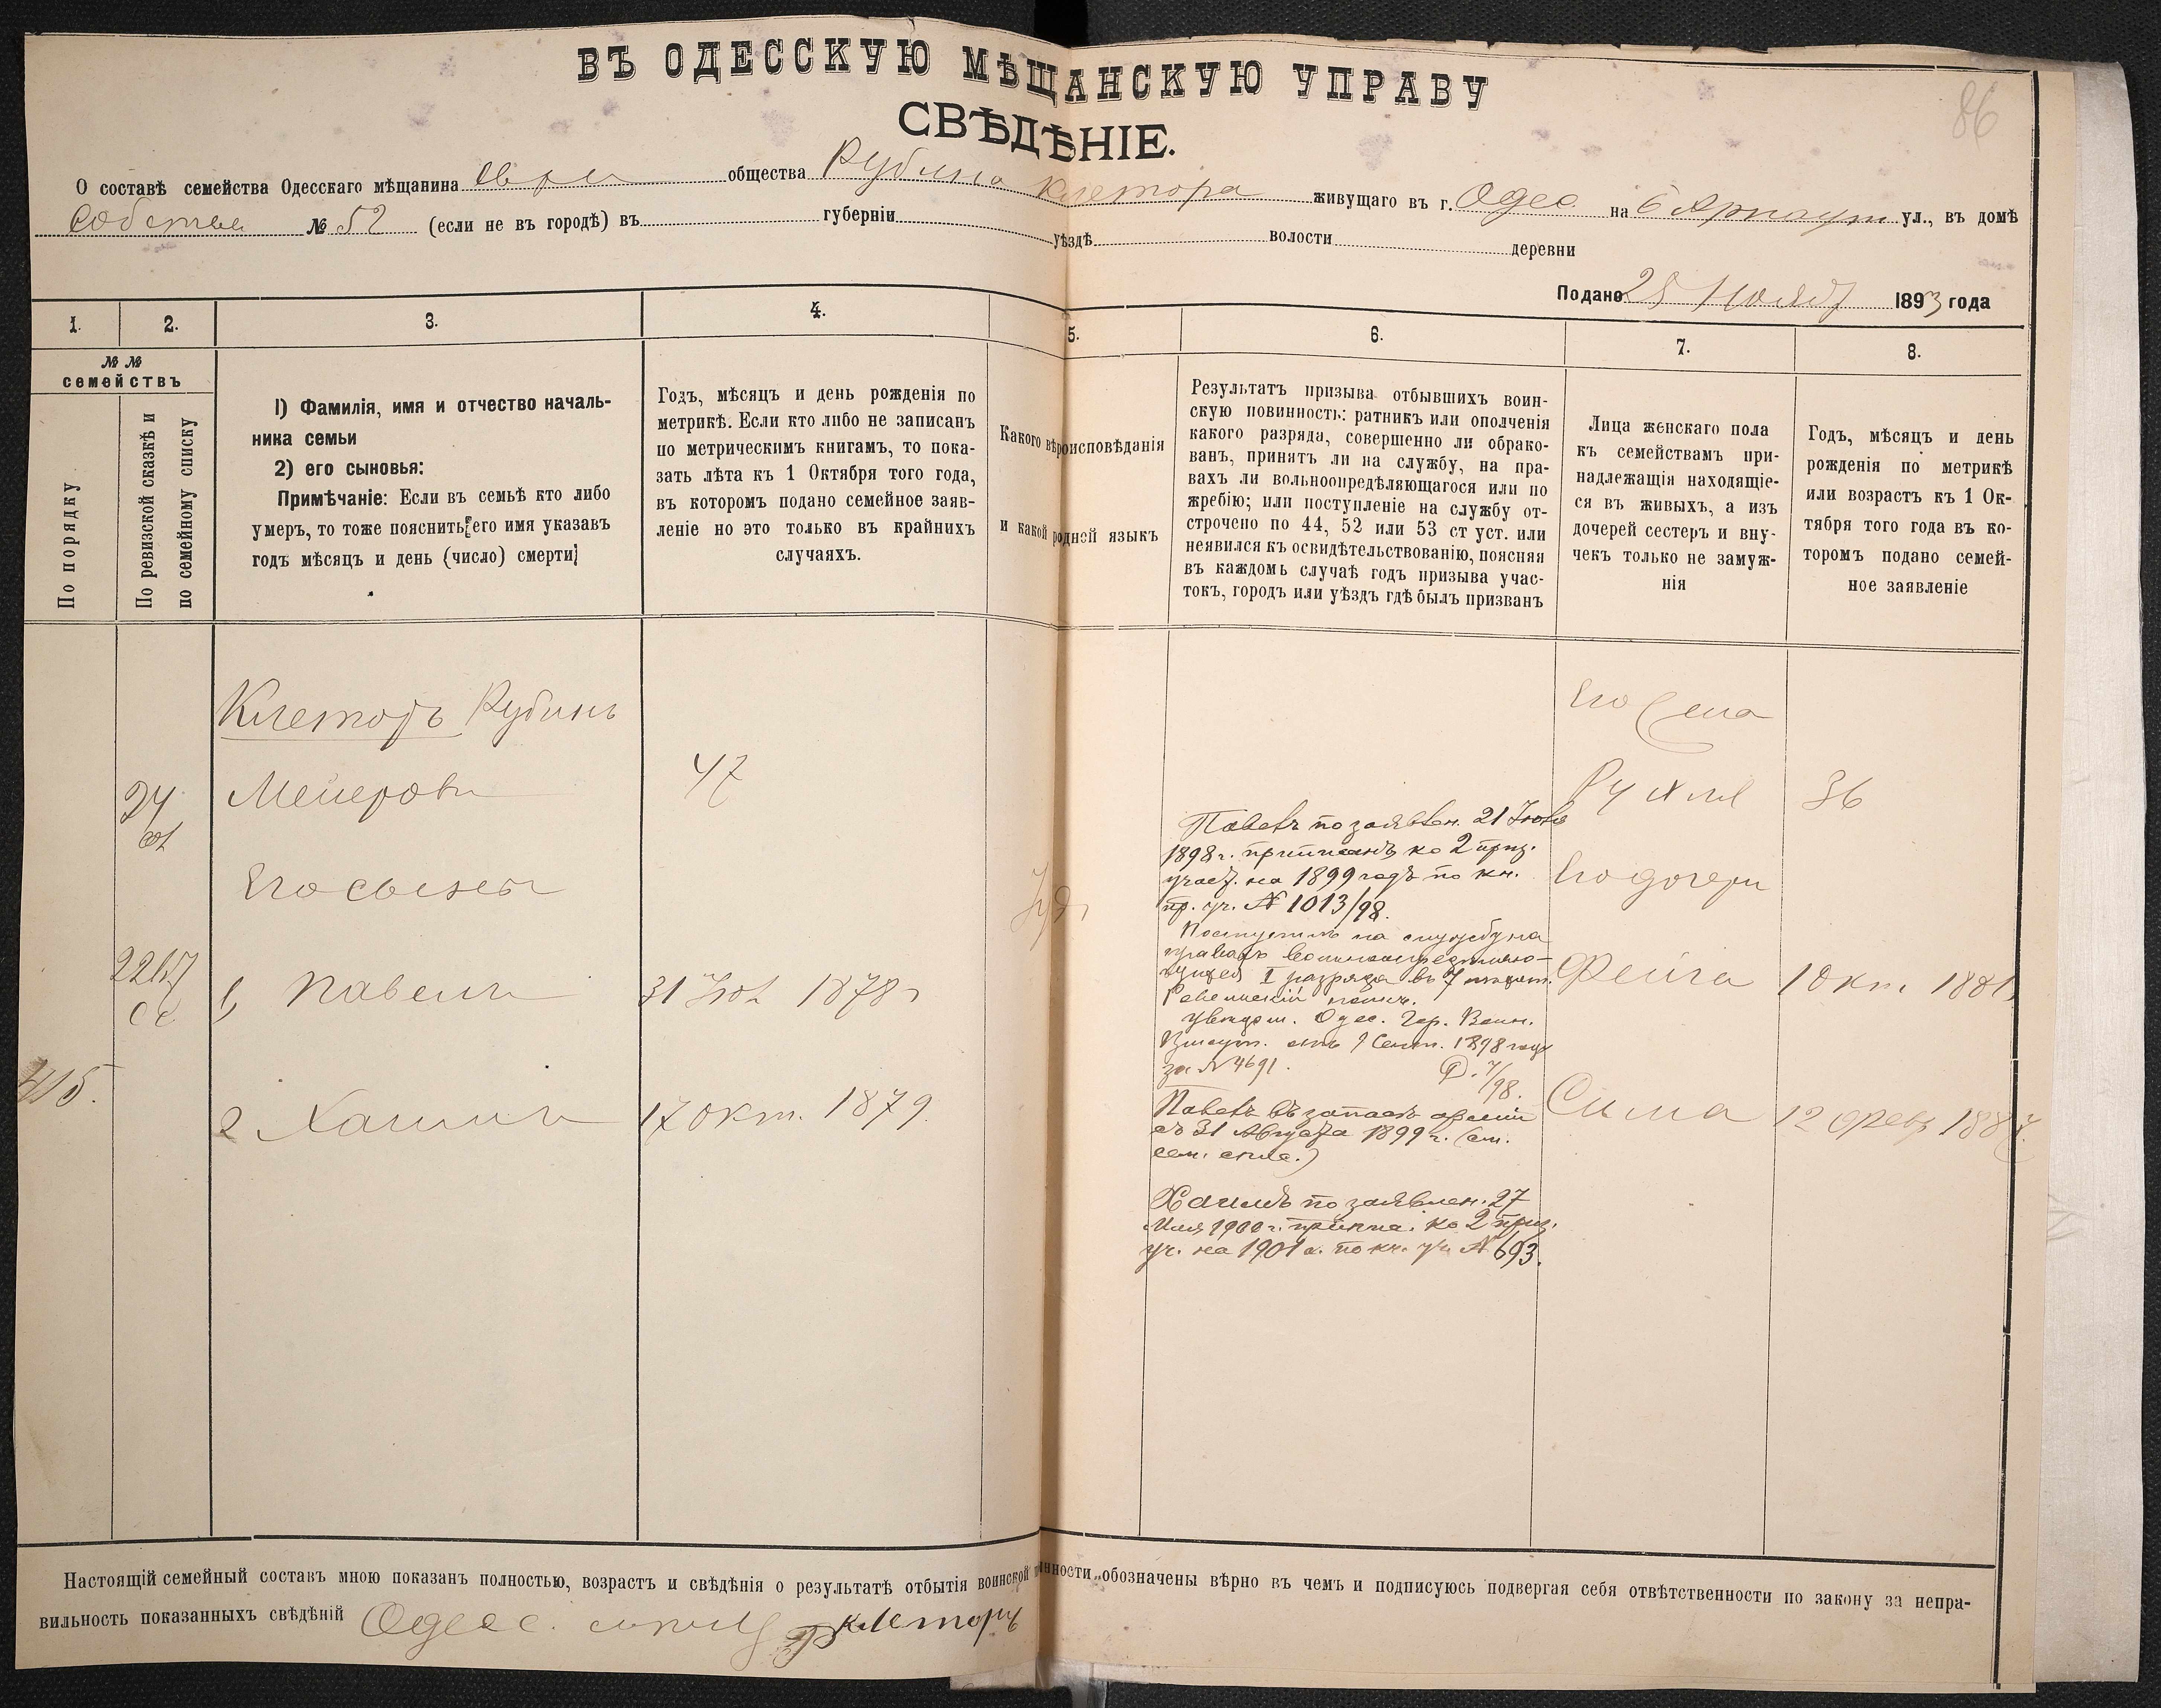 ВЪ ОДЕССКУЮ МѢЩАНСКУЮ УПРАВУ
86
СВѢДѢНІЕ.
О составѣ семейства Одесскаго мѣщанина Евре общества Рубина Клетора живущаго въ г. Одес на Б Арнаут ул., въ домѣ
Собствен № 52 (если не въ городѣ) въ губерніи уѣздѣ волости деревни
Подано 25 Нояб 1893 года
1. 2. 3. 4. 5. 6. 7. 8.
№ №
семействъ
По порядку
По ревизской сказкѣ и
по семейному списку
1) Фамилія, имя и отчество началь-
ника семьи
2) его сыновья:
Примѣчаніе: Если въ семьѣ кто либо
умеръ, то тоже пояснить его имя указавъ
годъ мѣсяцъ и день (число) смерти
Годъ, мѣсяцъ и день рожденія по
метрикѣ. Если кто либо не записанъ
по метрическимъ книгамъ, то пока-
зать лѣта къ 1 Октября того года,
въ которомъ подано семейное заяв-
леніе но это только въ крайнихъ
случаяхъ.
Какого вѣроисповѣданія
и какой родной языкъ
Результатъ призыва отбывшихъ воин-
скую повинность: ратникъ или ополченія
какого разряда, совершенно ли обрако-
ванъ, принятъ ли на службу, на пра-
вахъ ли вольноопредѣляющагося или по
жребію; или поступленіе на службу от-
строчено по 44, 52 или 53 ст уст. или
неявился къ освидѣтельствованію, поясняя
въ каждомъ случаѣ годъ призыва учас-
токъ, городъ или уѣздъ гдѣ былъ призванъ
Лица женскаго пола
къ семействамъ при-
надлежащія находящіе-
ся въ живыхъ, а изъ
дочерей сестеръ и вну-
чекъ только не замуж-
нія
Годъ, мѣсяцъ и день
рожденія по метрикѣ
или возрастъ къ 1 Ок-
тября того года въ ко-
торомъ подано семей-
ное заявленіе
Клеторъ Рубинъ
Мейеровъ
47
Его сыновья
1, Павелъ 31 Іюл 1878 г
415.
2 Хаимъ 17 Окт. 1879.
Іуд
Павелъ по заявлен. 21 Іюля
1898 г. приписанъ ко 2 приз.
участ. на 1899 годъ по кн.
пр. уч. № 1013/98.
Поступилъ на службу на
правахъ вольноопредѣляю-
щагося I разряда въ 7
увѣдом. Одес. Гор. Воин.
отъ 9 Сент. 1898 года
за № 4691.
Павелъ въ запасѣ арміи
съ 31 Августа 1899 г. (см.
сем. спис.)
Хаимъ по заявлен. 27
Мая 1900 г. приписа. ко 2 приз.
уч. на 1901 г. по кн. уч. № 693.
Его жена
Рухля 36
Его дочери
Фейга 1 Окт. 1881
Сима 12 Февр 1887.
Настоящій семейный составъ мною показанъ полностью, возрастъ и свѣдѣнія о результатѣ отбытія воинской повинности обозначены вѣрно въ чемъ и подписуюсь подвергая себя отвѣтственности по закону за непра-
вильность показанныхъ свѣдѣній Одесс. Клеторъ